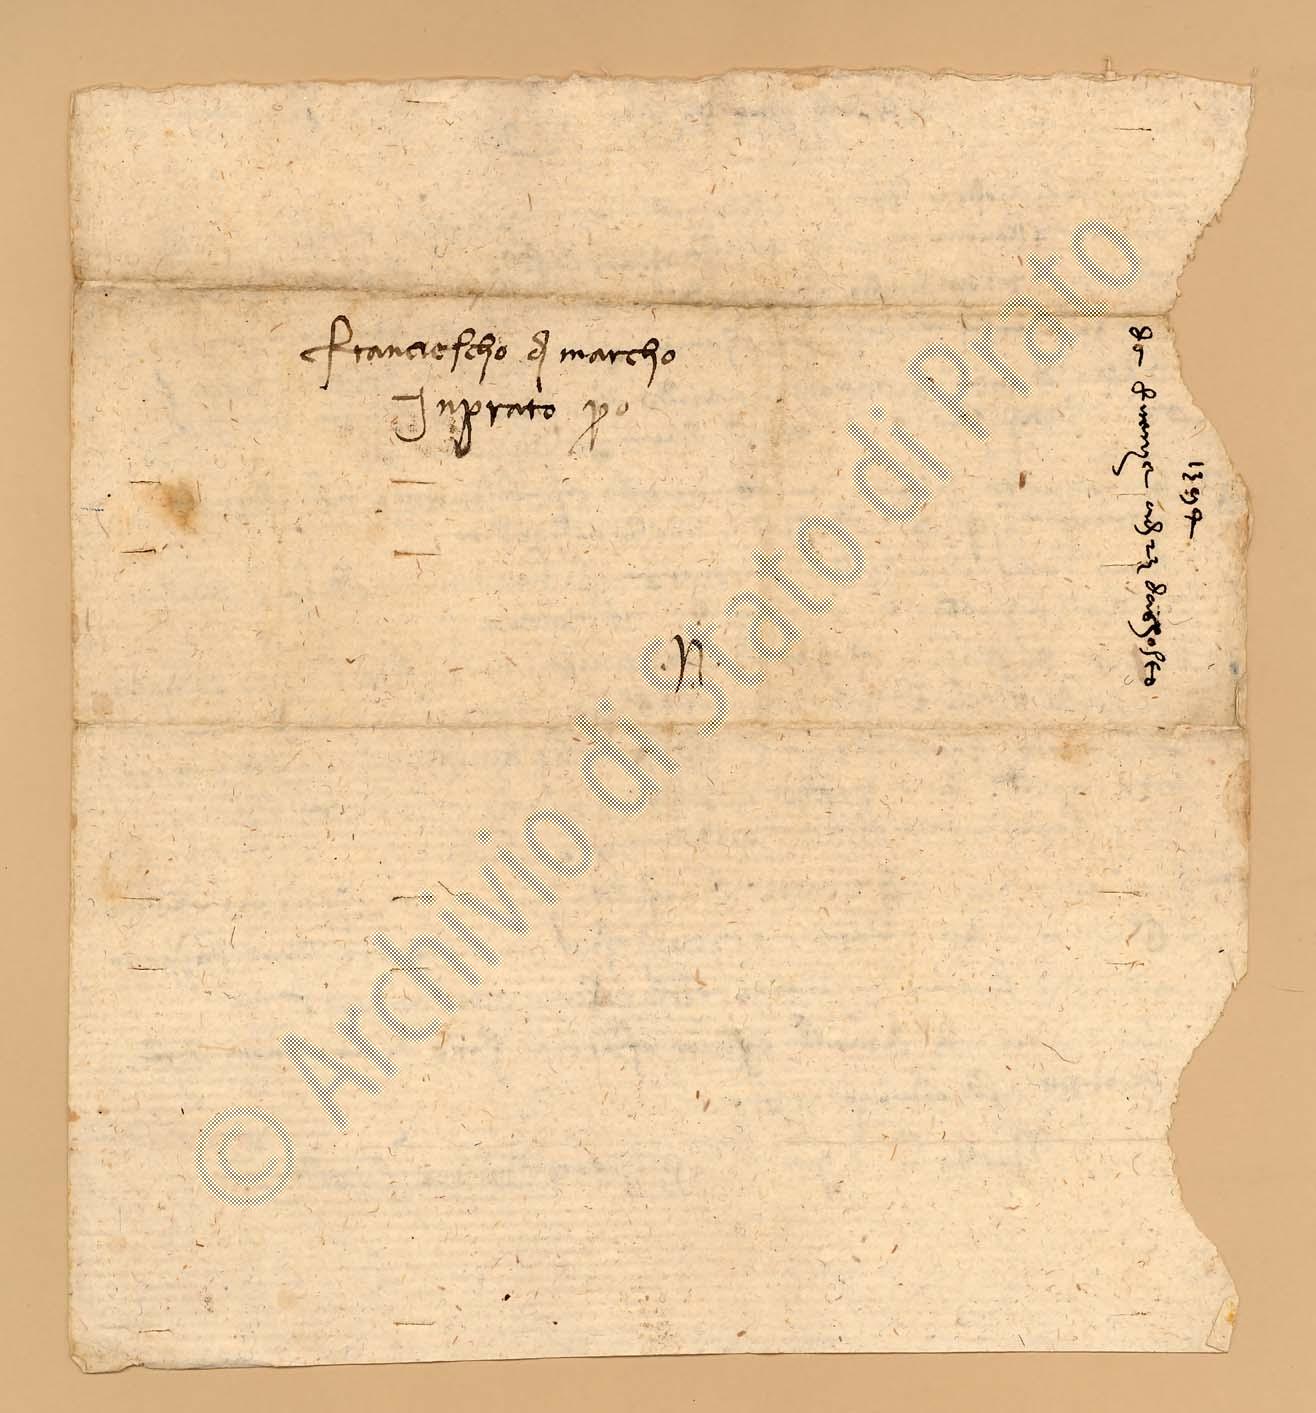 Franciescho di Marcho
In Prato propio
N
1394
da Firenze adì 21 d'aghosto
© Archivio di Stato di Prato